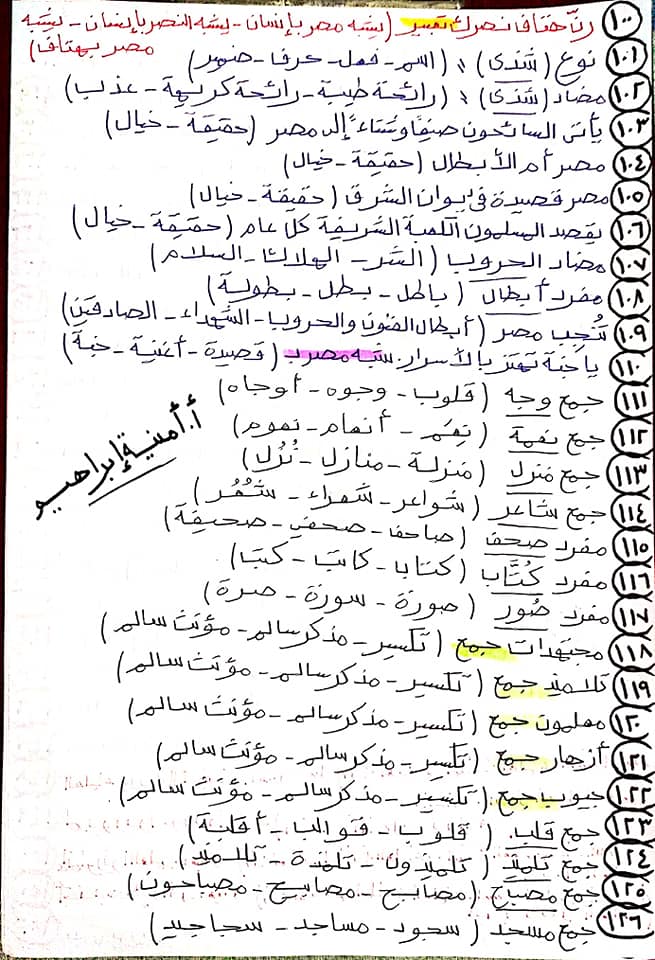 ١٠٠ رنَّ هتاف نصرك تعبير (يشبه مصر بإنسان - يشبه النصر بإنسان - يشبه مصر بهتاف)
١٠١ نوع (شذى) (اسم - فعل - حرف - ضمير)
١٠٢ مضاد (شذى) (رائحة طيبة - رائحة كريهة - عذب)
١٠٣ يأتى السائحون صيفًا وشتاءً إلى مصر (حقيقة - خيال)
١٠٤ مصر أم الأبطال (حقيقة - خيال)
١٠٥ مصر قصيدة فى ديوان الشرق (حقيقة - خيال)
١٠٦ يقصد المسلمون الكعبة الشريفة كل عام (حقيقة - خيال)
١٠٧ مضاد الحروب (الشر - الهلاك - السلام)
١٠٨ مفرد أبطال (باطل - بطل - بطولة)
١٠٩ تُنجب مصر (أبطال الفنون والحروب - الشهداء - الصادقين)
١١٠ ياجنة تهتز بالأسرار. شبه مصر بـ (قصيدة - أغنية - جنة)
١١١ جمع وجه (قلوب - وجوه - أوجاه)
١١٢ جمع نغمة (نِغَم - أنغام - نغوم)
١١٣ جمع منزل (منزلة - منازل - نُزُل)
١١٤ جمع شاعر (شواعر - شعراء - شُعُر)
١١٥ مفرد صحف (صاحف - صحفي - صحيفة)
١١٦ مفرد كُتَّاب (كتاب - كاتب - كتب)
١١٧ مفرد صُور (صورة - سورة - صرة)
١١٨ مجتهدات جمع (تكسير - مذكر سالم - مؤنث سالم)
١١٩ تلاميذ جمع (تكسير - مذكر سالم - مؤنث سالم)
١٢٠ معلمون جمع (تكسير - مذكر سالم - مؤنث سالم)
١٢١ أزهار جمع (تكسير - مذكر سالم - مؤنث سالم)
١٢٢ جيوب جمع (تكسير - مذكر سالم - مؤنث سالم)
١٢٣ جمع قلب (قلوب - قوالب - أقلبة)
١٢٤ جمع تلميذ (تلميذون - تلمذة - تلاميذ)
١٢٥ جمع مصباح (مصابح - مصابيح - مصباحون)
١٢٦ جمع مسجد (سجود - مساجد - سجاجيد)
أ. أمنية إبراهيم